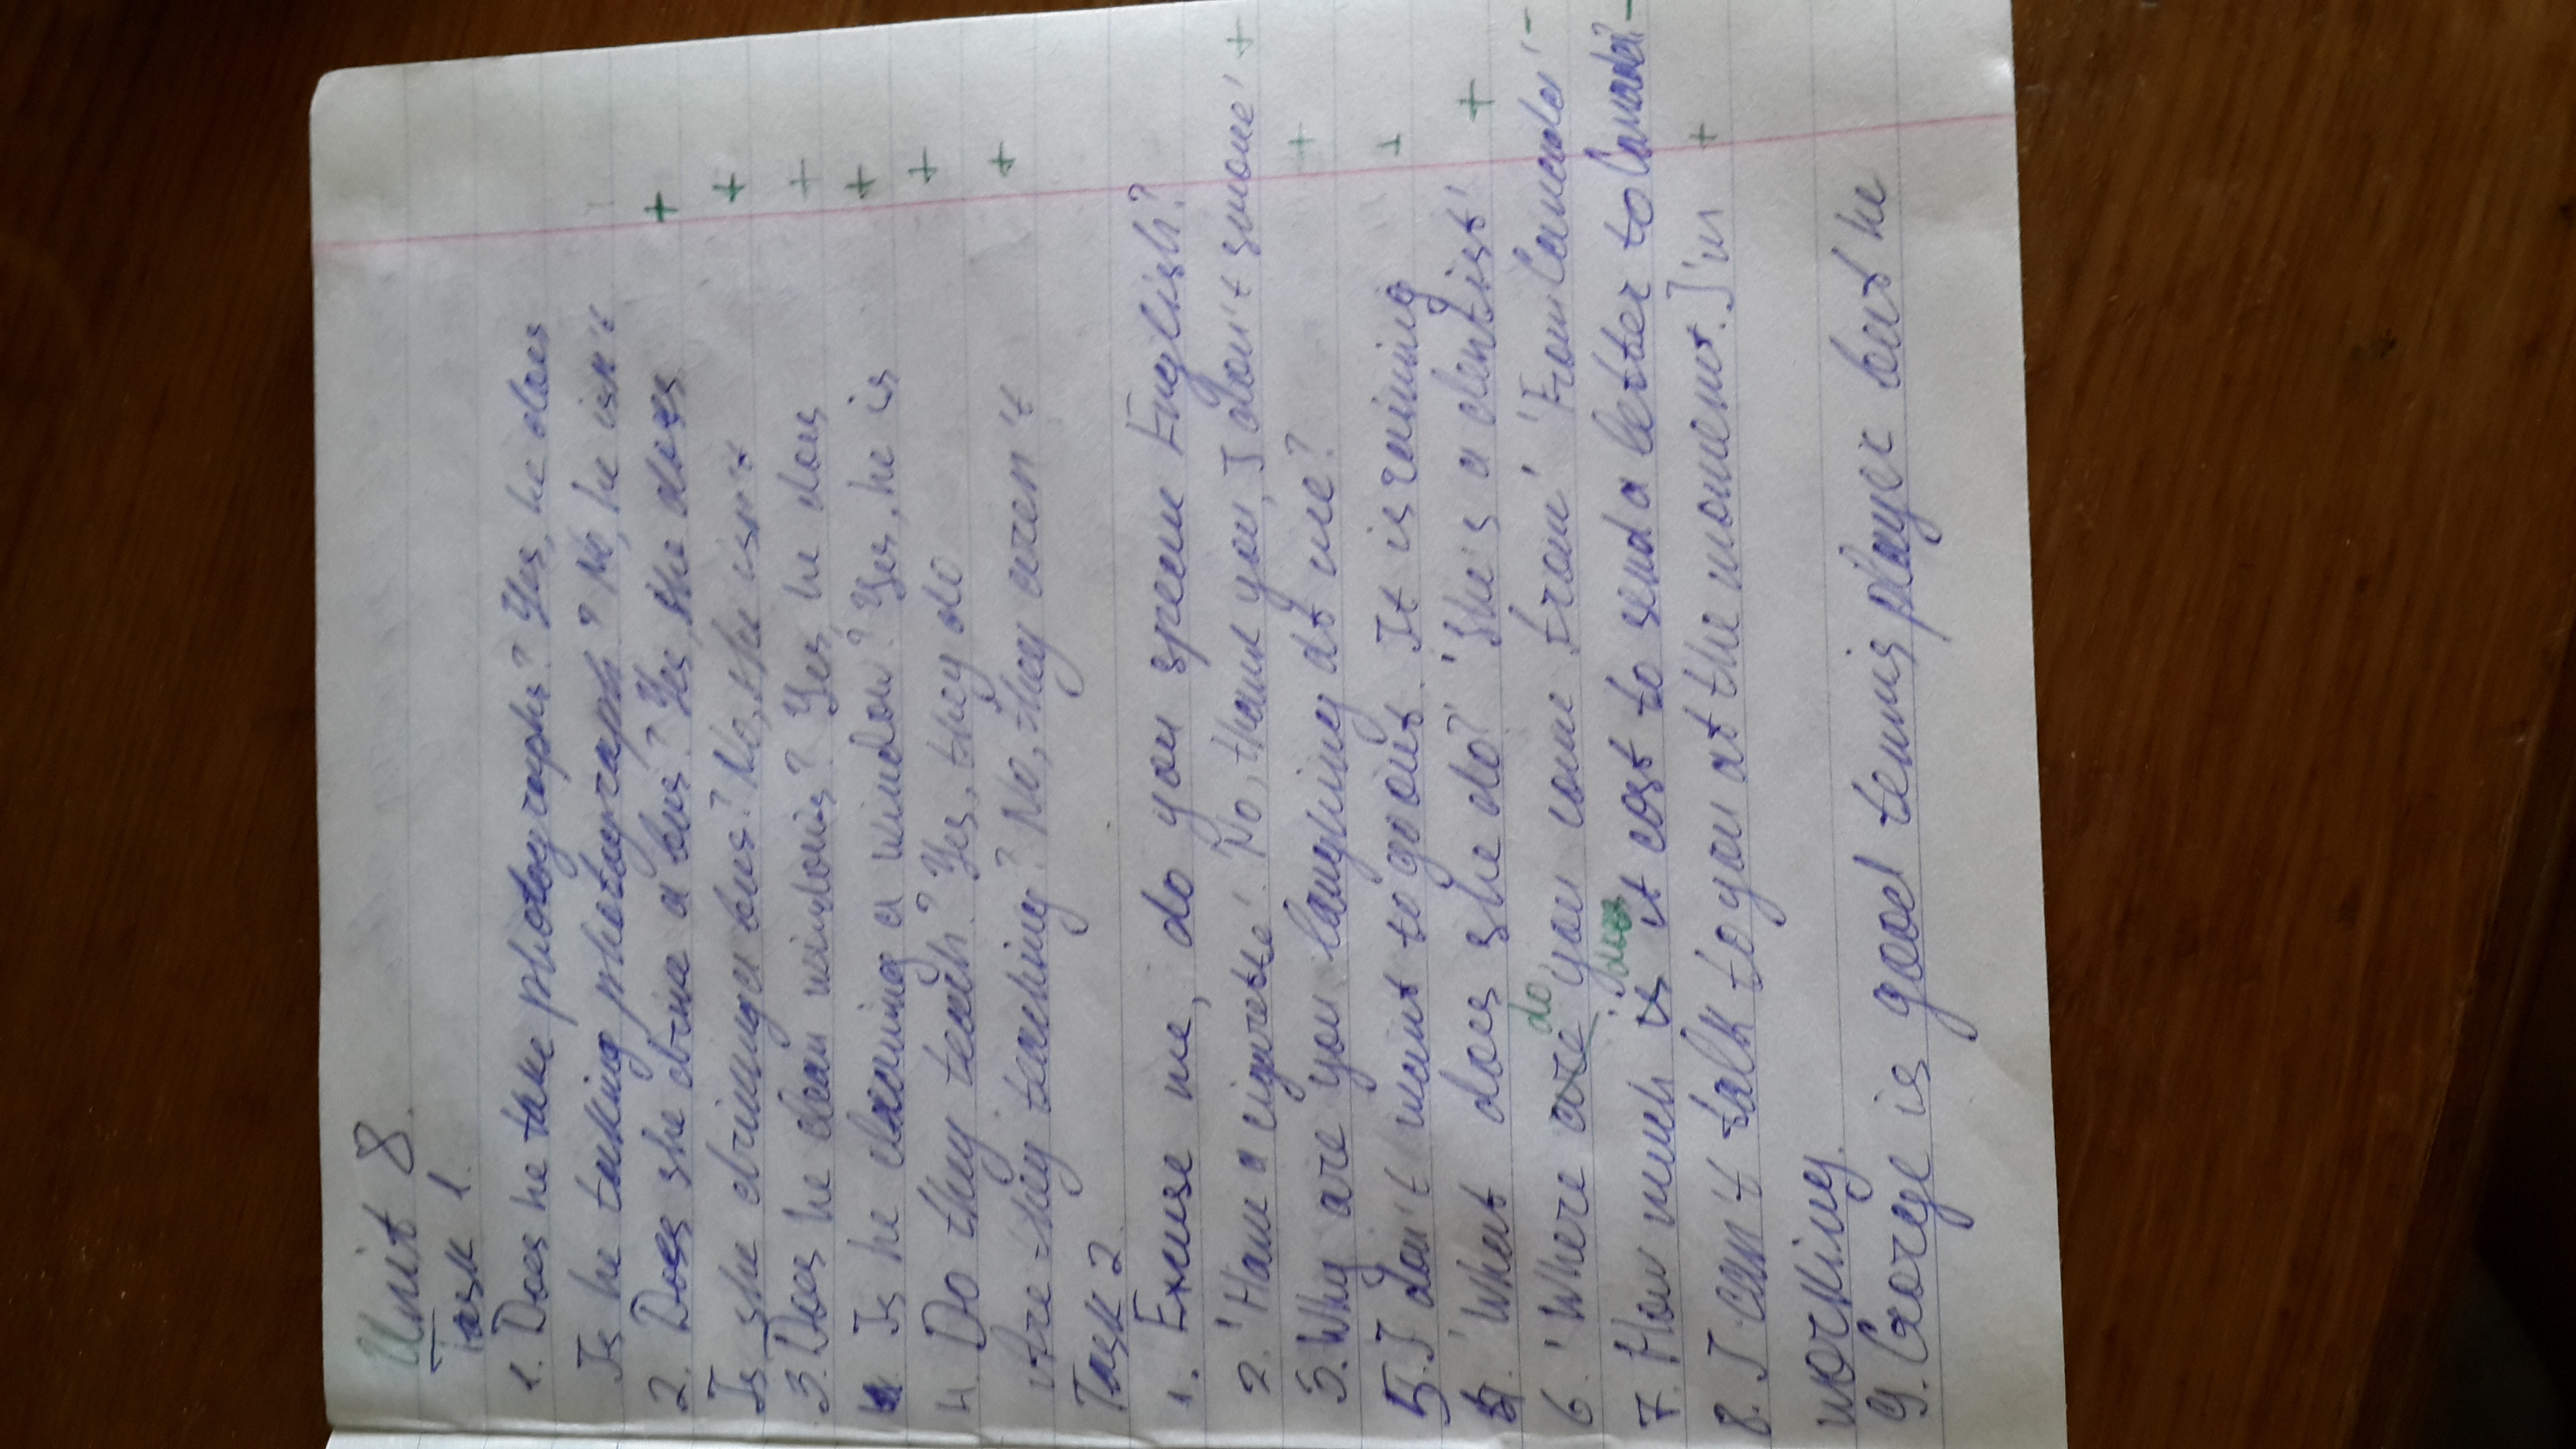 Unit 8.
Task 1.
1. Does he take photographs? Yes, he does
Is he taking photograph? No, he isn't
2. Does she drive a bus? Yes, she does +
Is she driving a bus? No, she isn't +
3. Does he clean windows? Yes, he does +
Is he cleaning a window? Yes, he is +
4. Do they teach? Yes, they do +
Are they teaching? No, they aren't +
Task 2.
1. Excuse me, do you speak English?
2. 'Have a cigarette'. No, thank you, I don't smoke' +
3. Why are you laughing at me? +
5. I don't want to go out. It is raining +
4. 'What does she do?' 'She's a dentist' +
do
6. 'Where are you come from' 'From Canada' -
does
7. How much is it cost to send a letter to Canada? -
8. I can't talk to you at the moment. I'm +
working.
9. George is good tennis player but he